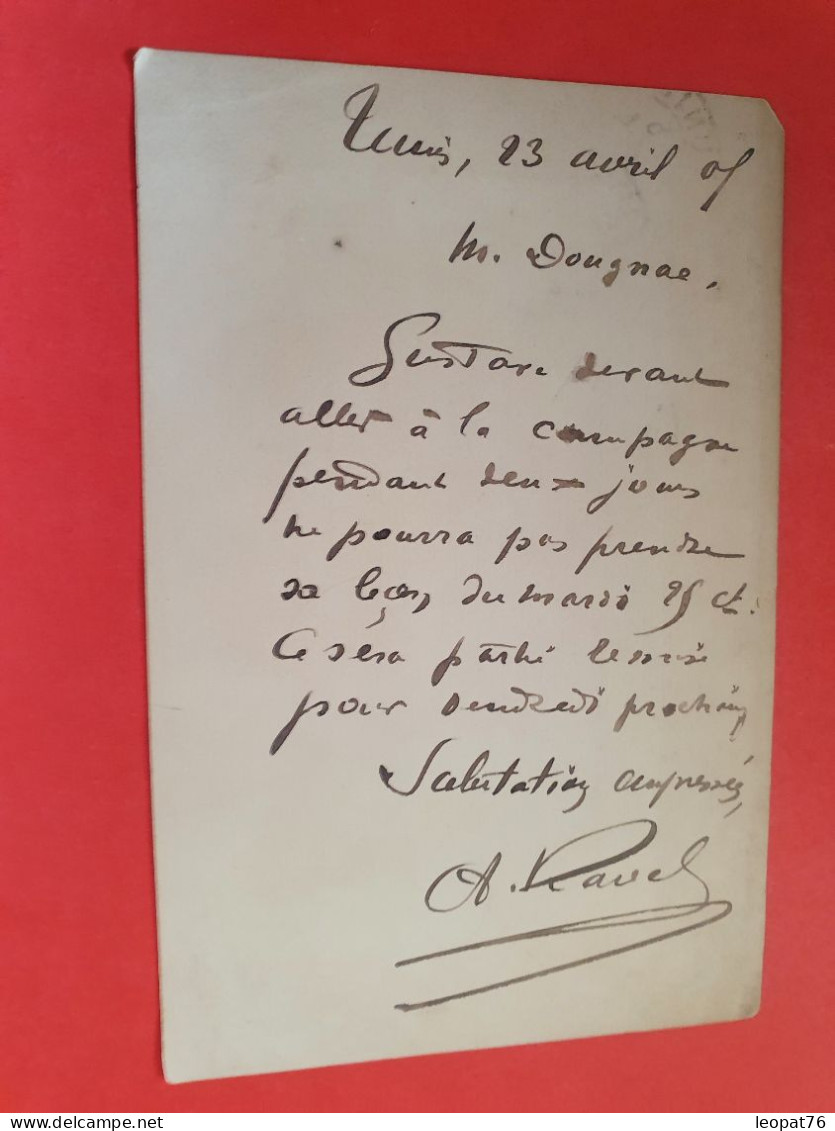 Tunis, 23 avril 05
M. Dougnac,
Gustave devant
aller à la campagne
pendant deux jours
ne pourra pas prendre
sa leçon du mardi 25 ct.
Ce sera partie remise
pour vendredi prochain
Salutations empressées,
A. Ravel
leopat76